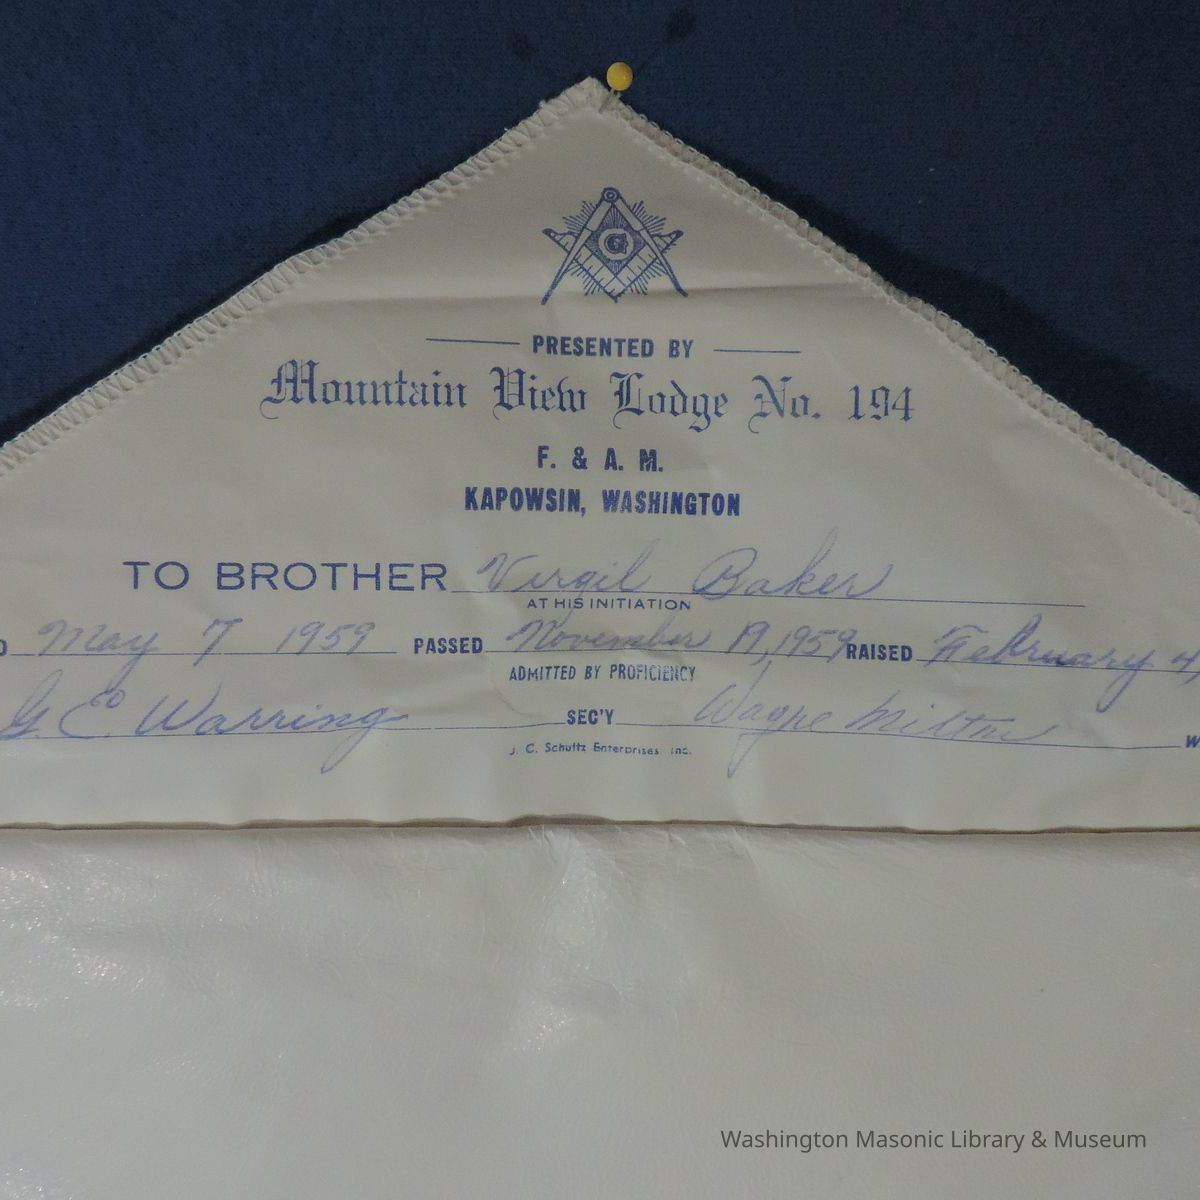 G
PRESENTED BY
Mountain View Lodge No. 194
F. & A. M.
KAPOWSIN, WASHINGTON
TO BROTHER Virgil Baker
AT HIS INITIATION
D May 7 1959 PASSED November 19, 1959 RAISED February 4,
ADMITTED BY PROFICIENCY
G E Warring SEC'Y Wayne Milton W
J. C. Schultz Enterprises, Inc.
Washington Masonic Library & Museum